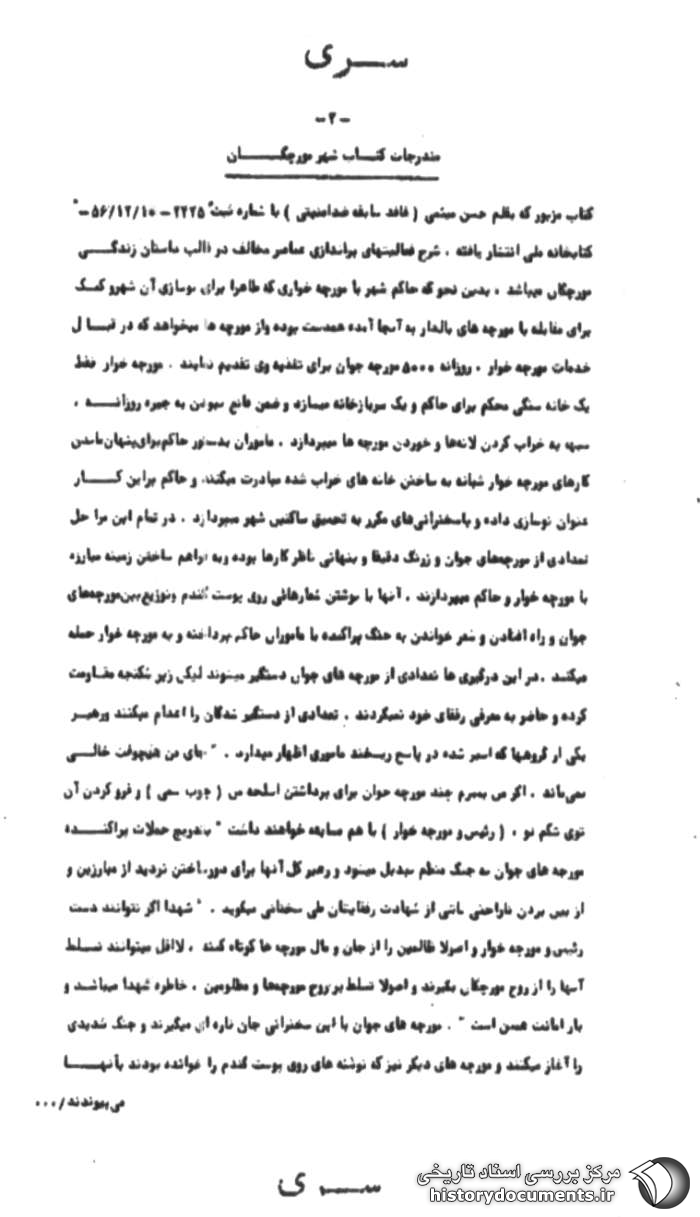 سری
-۲-
مندرجات کتاب شهر مورچگان
کتاب مزبور که بقلم حسن میثمی ( فاقد سابقه ضدامنیتی ) با شماره ثبت "۲۲۲۵ - ۵۶/۱۲/۱۰ -"
کتابخانه ملی انتشار یافته ، شرح فعالیتهای براندازی عناصر مخالف در قالب داستان زندگی
مورچگان میباشد ، بدین نحو که حاکم شهر با مورچه خواری که ظاهرا برای نوسازی آن شهر و کمک
برای مقابله با مورچه های بالدار به آنجا آمده همدست بوده و از مورچه ها میخواهد که در قبال
خدمات مورچه خوار ، روزانه ۵۰۰۰ مورچه جوان برای تغذیه وی تقدیم نمایند . مورچه خوار فقط
یک خانه سنگی محکم برای حاکم و یک سربازخانه میسازد و ضمن قانع نبودن به جیره روزانه ،
به خراب کردن لانه‌ها و خوردن مورچه ها میپردازد . ماموران بدستور حاکم برای پنهان ماندن
کارهای مورچه خوار شبانه به ساختن خانه های خراب شده مبادرت میکنند و حاکم براین کار
عنوان نوسازی داده و باسخنرانی‌های مکرر به تحمیق ساکنین شهر میپردازد . در تمام این مراحل
تعدادی از مورچه‌های جوان و زرنگ دقیقا و پنهانی ناظر کارها بوده و به فراهم ساختن زمینه مبارزه
با مورچه خوار و حاکم میپردازند . آنها با نوشتن شعارهائی روی پوست گندم و توزیع بین مورچه‌های
جوان و راه افتادن و شعر خواندن به جنگ پراکنده با ماموران حاکم پرداخته و به مورچه خوار حمله
میکنند . در این درگیری ها تعدادی از مورچه های جوان دستگیر میشوند لیکن زیر شکنجه مقاومت
کرده و حاضر به معرفی رفقای خود نمیگردند . تعدادی از دستگیر شدگان را اعدام میکنند و رهبر
یکی از گروهها که اسیر شده در پاسخ ریشخند ماموری اظهار میدارد . " جای من هیچوقت خالی
نمی‌ماند . اگر من بمیرم چند مورچه جوان برای برداشتن اسلحه من ( چوب سمی ) و فرو کردن آن
توی شکم تو ، ( رئیس و مورچه خوار ) با هم مسابقه خواهند داشت " بتدریج حملات پراکنده
مورچه های جوان به جنگ منظم مبدیل میشود و رهبر کل آنها برای دور ساختن تردید از مبارزین و
از بین بردن ناراحتی ناشی از شهادت رفقایشان طی سخنانی میگوید . " شهدا اگر نتوانند دست
رئیس و مورچه خوار و اصولا ظالمین را از جان و مال مورچه ها کوتاه کنند ، لااقل میتوانند تسلط
آنها را از روح مورچگان بگیرند و اصولا تسلط بر روح مورچه‌ها و مظلومین ، خاطره شهدا میباشد و
بار امانت همین است " . مورچه های جوان با این سخنرانی جان تازه ای میگیرند و جنگ شدیدی
را آغاز میکنند و مورچه های دیگر نیز که نوشته های روی پوست گندم را خوانده بودند بآنها
می‌پیوندند / ۰۰۰
سری
مرکز بررسی اسناد تاریخی
historydocuments.ir